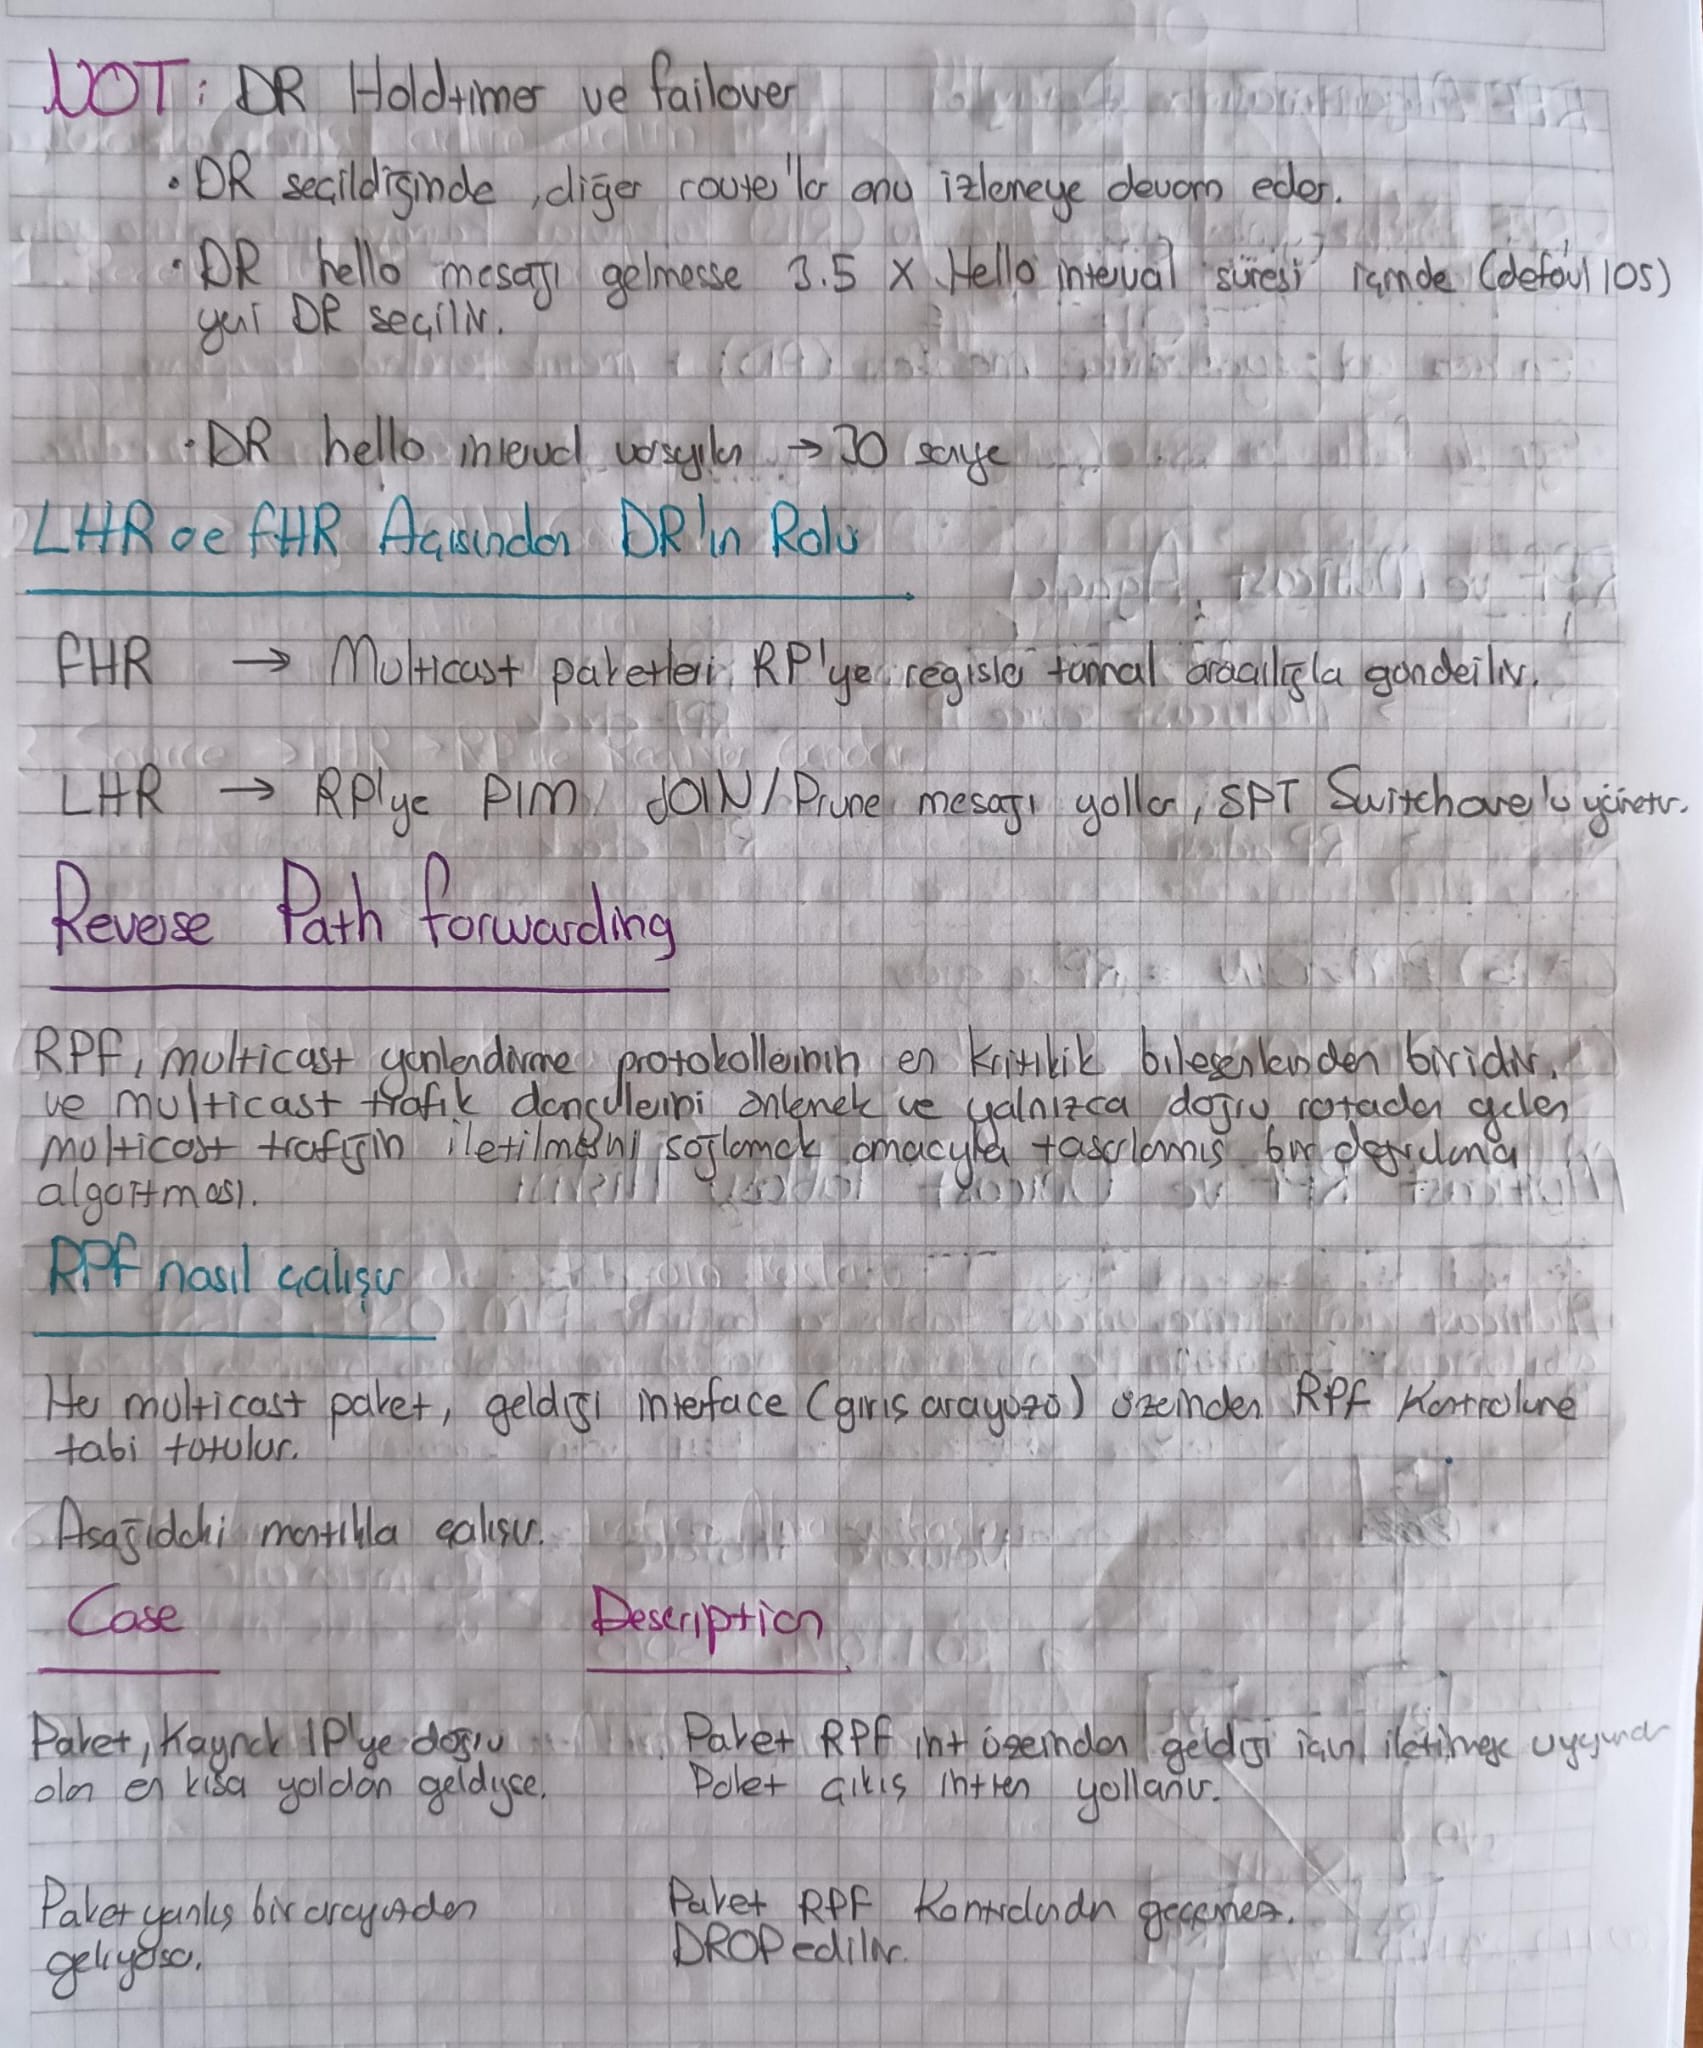 NOT: DR Holdtimer ve failover
• DR seçildiğinde, diğer route'lar onu izlemeye devam eder.
• DR hello mesajı gelmesse 3.5 X Hello interval süresi içinde (defaul 105)
yeni DR seçilir.
• DR hello interval varsayılan → 30 saniye
LHR ve FHR Açısından DR'ın Rolü
FHR → Multicast paketleri RP'ye register tünnal aracılığla gönderilir.
LHR → RP'ye PIM JOIN/Prune mesajı yollar, SPT Switchover'ü yönetir.
Reverse Path Forwarding
RPF, multicast yönlendirme protokollerinin en kritikik bileşenlerinden biridir.
ve multicast trafik döngülerini önlemek ve yalnızca doğru rotadan gelen
multicast trafiğin iletilmesini sağlamak amacıyla tasarlamış bir doğrulama
algoritması.
RPF nasıl çalışır
Her multicast paket, geldiği interface (giriş arayüzü) üzerinden RPF Kontrolüne
tabi tutulur.
Asağıdaki mantıkla çalışır.
Case Description
Paket, Kaynak IP'ye doğru
olan en kısa yoldan geldiyse.
Paket RPF int üzerinden geldiği için iletilmeye uygundur
Paket çıkış intten yollanır.
Paket yanlış bir arayüzden
geliyosa.
Paket RPF Kontrolundn geçemez.
DROP edilir.